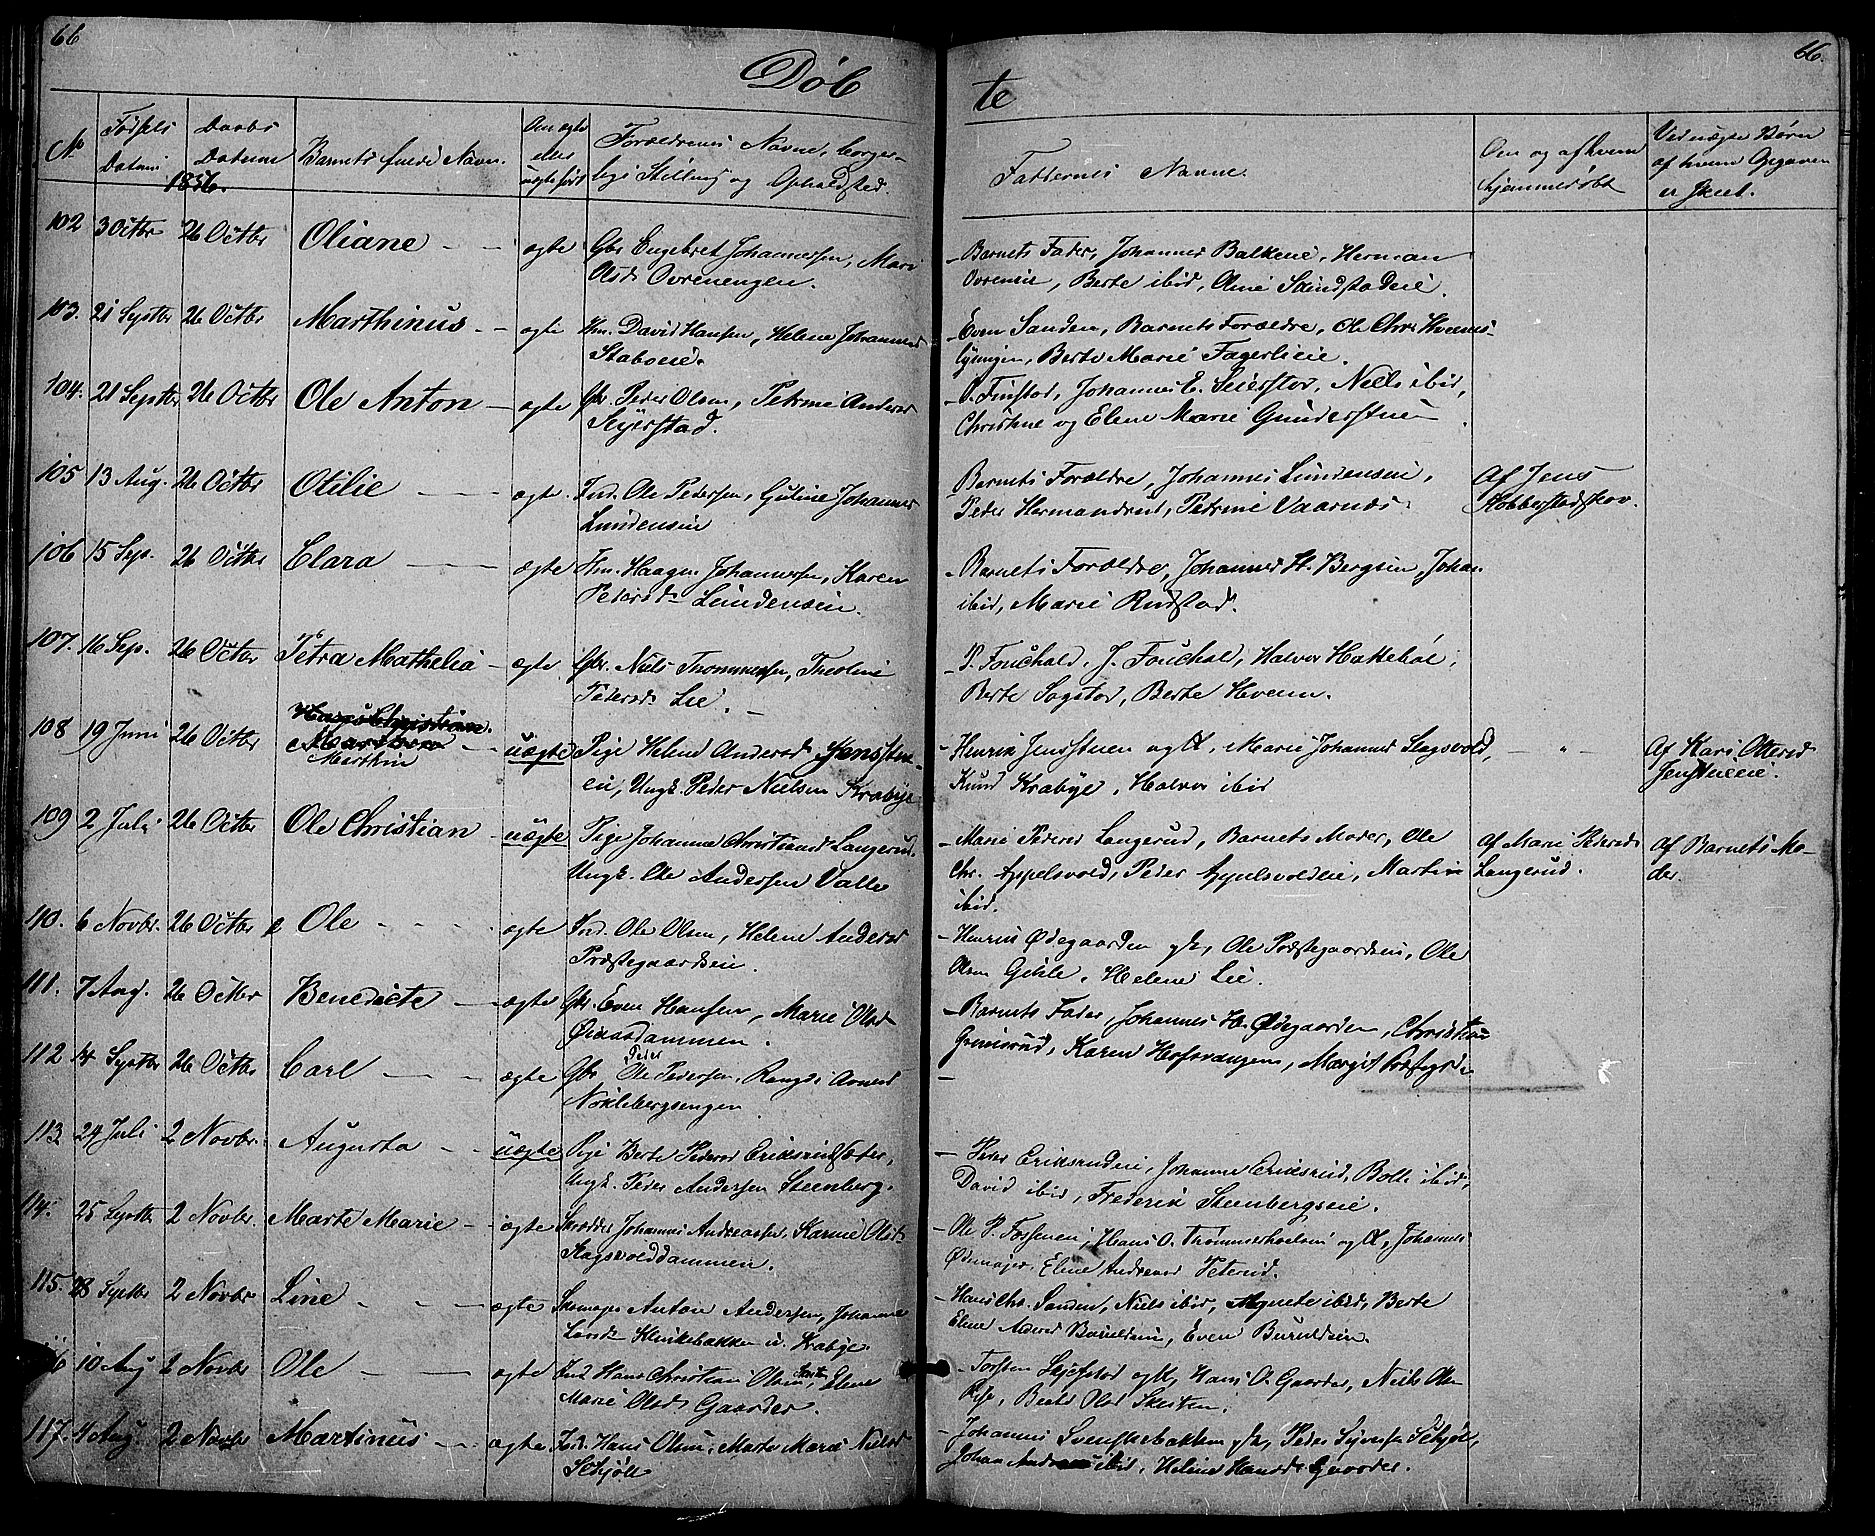 66
66.
Døb
te
No
Fødsels
Datum
Daabs
Datum
1856.
Barnets fulde Navn.
Om ægte
eller
uægte født
Forældrenes Navne, borger-
lige Stilling og Opholdsted.
Faddernes Navne.
Om og af hvem
hjemmedøbt
Ved uægte Børn
af hvem Opgaven
er skeet.
102 3 Octbr 26 Octbr Oliane ægte Gbr Engebret Johannessen, Mari
Olsd. Ovrenengen.
- Barnets Fader, Johannes Balkeeie, Herman
Ovreneie, Berte ibid, Oline
103. 21 Septbr 26 Octbr Marthinus ægte Hm. David Hansen, Helene Johannesd
- Even Sanden, Barnets Forældre, Ole Chr.
Berte Marie Fagerlieie.
104. 21 Septbr 26 Octbr Ole Anton ægte Gbr. Peder Olsen, Petrine Andersd
Seyerstad.
- P. Finstad, Johannes E. Seierstad, Niels ibid,
Christine og Elene Marie Gunderstuen
105 13 Aug. 26 Octbr Otilie ægte Ind. Ole Pedersen, Gutine Johannesd
Lundenseie
Barnets Forældre, Johannes Lundenseie,
Peder Hermandrud, Petrine Vaarnæs
Af Jens
Kobberstadskov.
106 15 Sep. 26 Octbr Clara ægte Hm. Haagen Johannessen, Karen
Pedersd. Lundenseie.
- Barnets Forældre, Johannes H. Bergseie, Johan
ibid, Marie Rudstad.
107. 16 Sep. 26 Octbr Petra Mathelia ægte Gbr. Niels Trommesen, Theoline
Pedersd. Lie.
- P. Fouchald, J. Fouchald, Halvor Hattebøl,
Berte Sagstad, Berte Hveem.
108 19 Juni 26 Octbr Marthin uægte Pige Helene Andersd Jensstu-
eie, Ungk. Peder Nielsen Krabye
- Henrik Jensstuen og K, Marie Johannesd Slagsvold,
Knud Krabye, Halvor ibid
- " -
Af Kari Ottersd
Jenstueeie.
109 2 Juli 26 Octbr Ole Christian uægte Pige Johanne Christiansd. Langerud.
Ungk. Ole Andersen Valle
- Marie Pedersd Langerud, Barnets Moder, Ole
Chr. Appelsvold, Peder Appelsvoldeie, Martin
ibid.
Af Marie Pedersd
Langerud.
Af Barnets Mo-
der.
110. 6 Novbr. 26 Octbr Ole ægte Ind. Ole Olsen, Helene Andersd
Præstegaardseie.
- Henrik Ødegaarden og K, Ole Præstegaardseie, Ole
Olsen Gihle, Helene Lie.
111. 7 Aug. 26 Octbr Benedicte ægte Gbr. Even Hansen, Marie Olsd
Øraasdammen.
- Barnets Fader, Johannes H. Ødegaarden, Christian
Grimsrud, Karen Hofsvangen, Margit
112 14 Septbr 26 Octbr Carl ægte Gbr
Peder
Ole Pedersen, Rangdi Arnesd
Nøklebergsengen.
-
113 24 Juli 2 Novbr. Augusta uægte Pige Berte Pedersd Eriksrudsæter,
Ungk. Peder Andersen Steenberg.
- Peder Eriksrudeie, Johanne Eriksrud, Bolte ibid,
David ibid, Frederik Steenbergseie.
114. 25 Septbr 2 Novbr. Marte Marie ægte Skrædder Johannes Andreassen, Karine Olsd.
Slagsvolddammen.
- Ole P. Fosseneie, Hans O. Trommerholseie og K, Johannes
Ødemager, Eline Andreasd Peterud.
115. 28 Septbr 2 Novbr Line ægte Skomager Anton Andersen, Johanne
Larsd. Klinkebakken u. Krabye.
- Hans Chr. Sanden, Niels ibid, Agnete ibid, Berte
Elene Andersd Buruldeie, Even Buruldeie.
116 10 Aug 2 Novbr Ole ægte Ind. Hans Christian Olsen, Elene
Marie Olsd. Gaarder.
- Torsten Skjefstad og K, Hans O. Gaarder, Niels Olsen
Beate Olsd
117. 4 Aug. 2 Novbr Martinus ægte Ind. Hans Olsen, Marte Marie Nielsd
Schjøll
- Johannes Svenskebakken og K, Peder Schjøll,
Johan Andersen ibid, Heline Hansd. Gaarder.